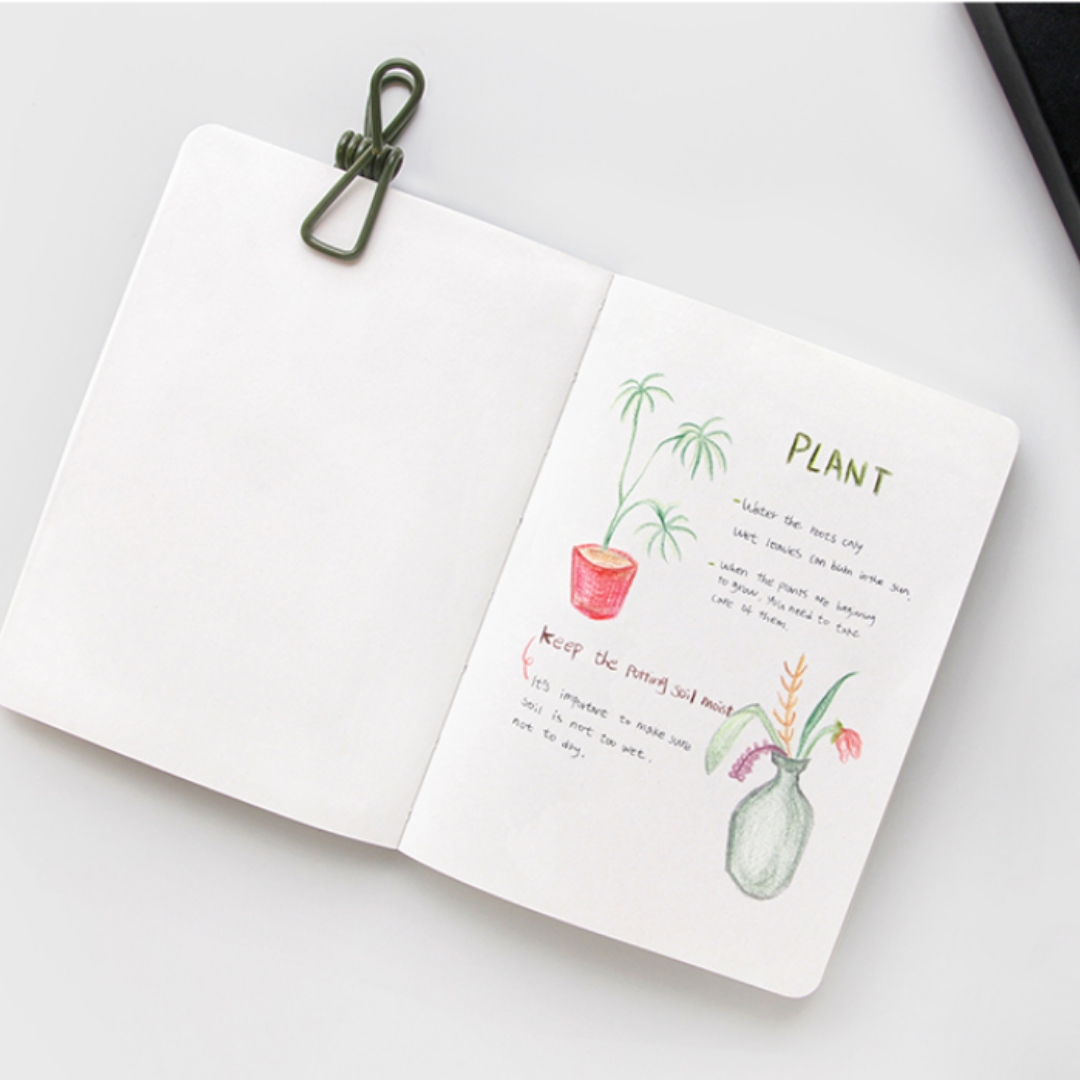 PLANT
- Water the roots only
Wet leaves can burn in the sun.
- When the plants are beginning
to grow, you need to take
care of them.
Keep the potting soil moist
It's important to make sure
soil is not too wet,
not to dry.